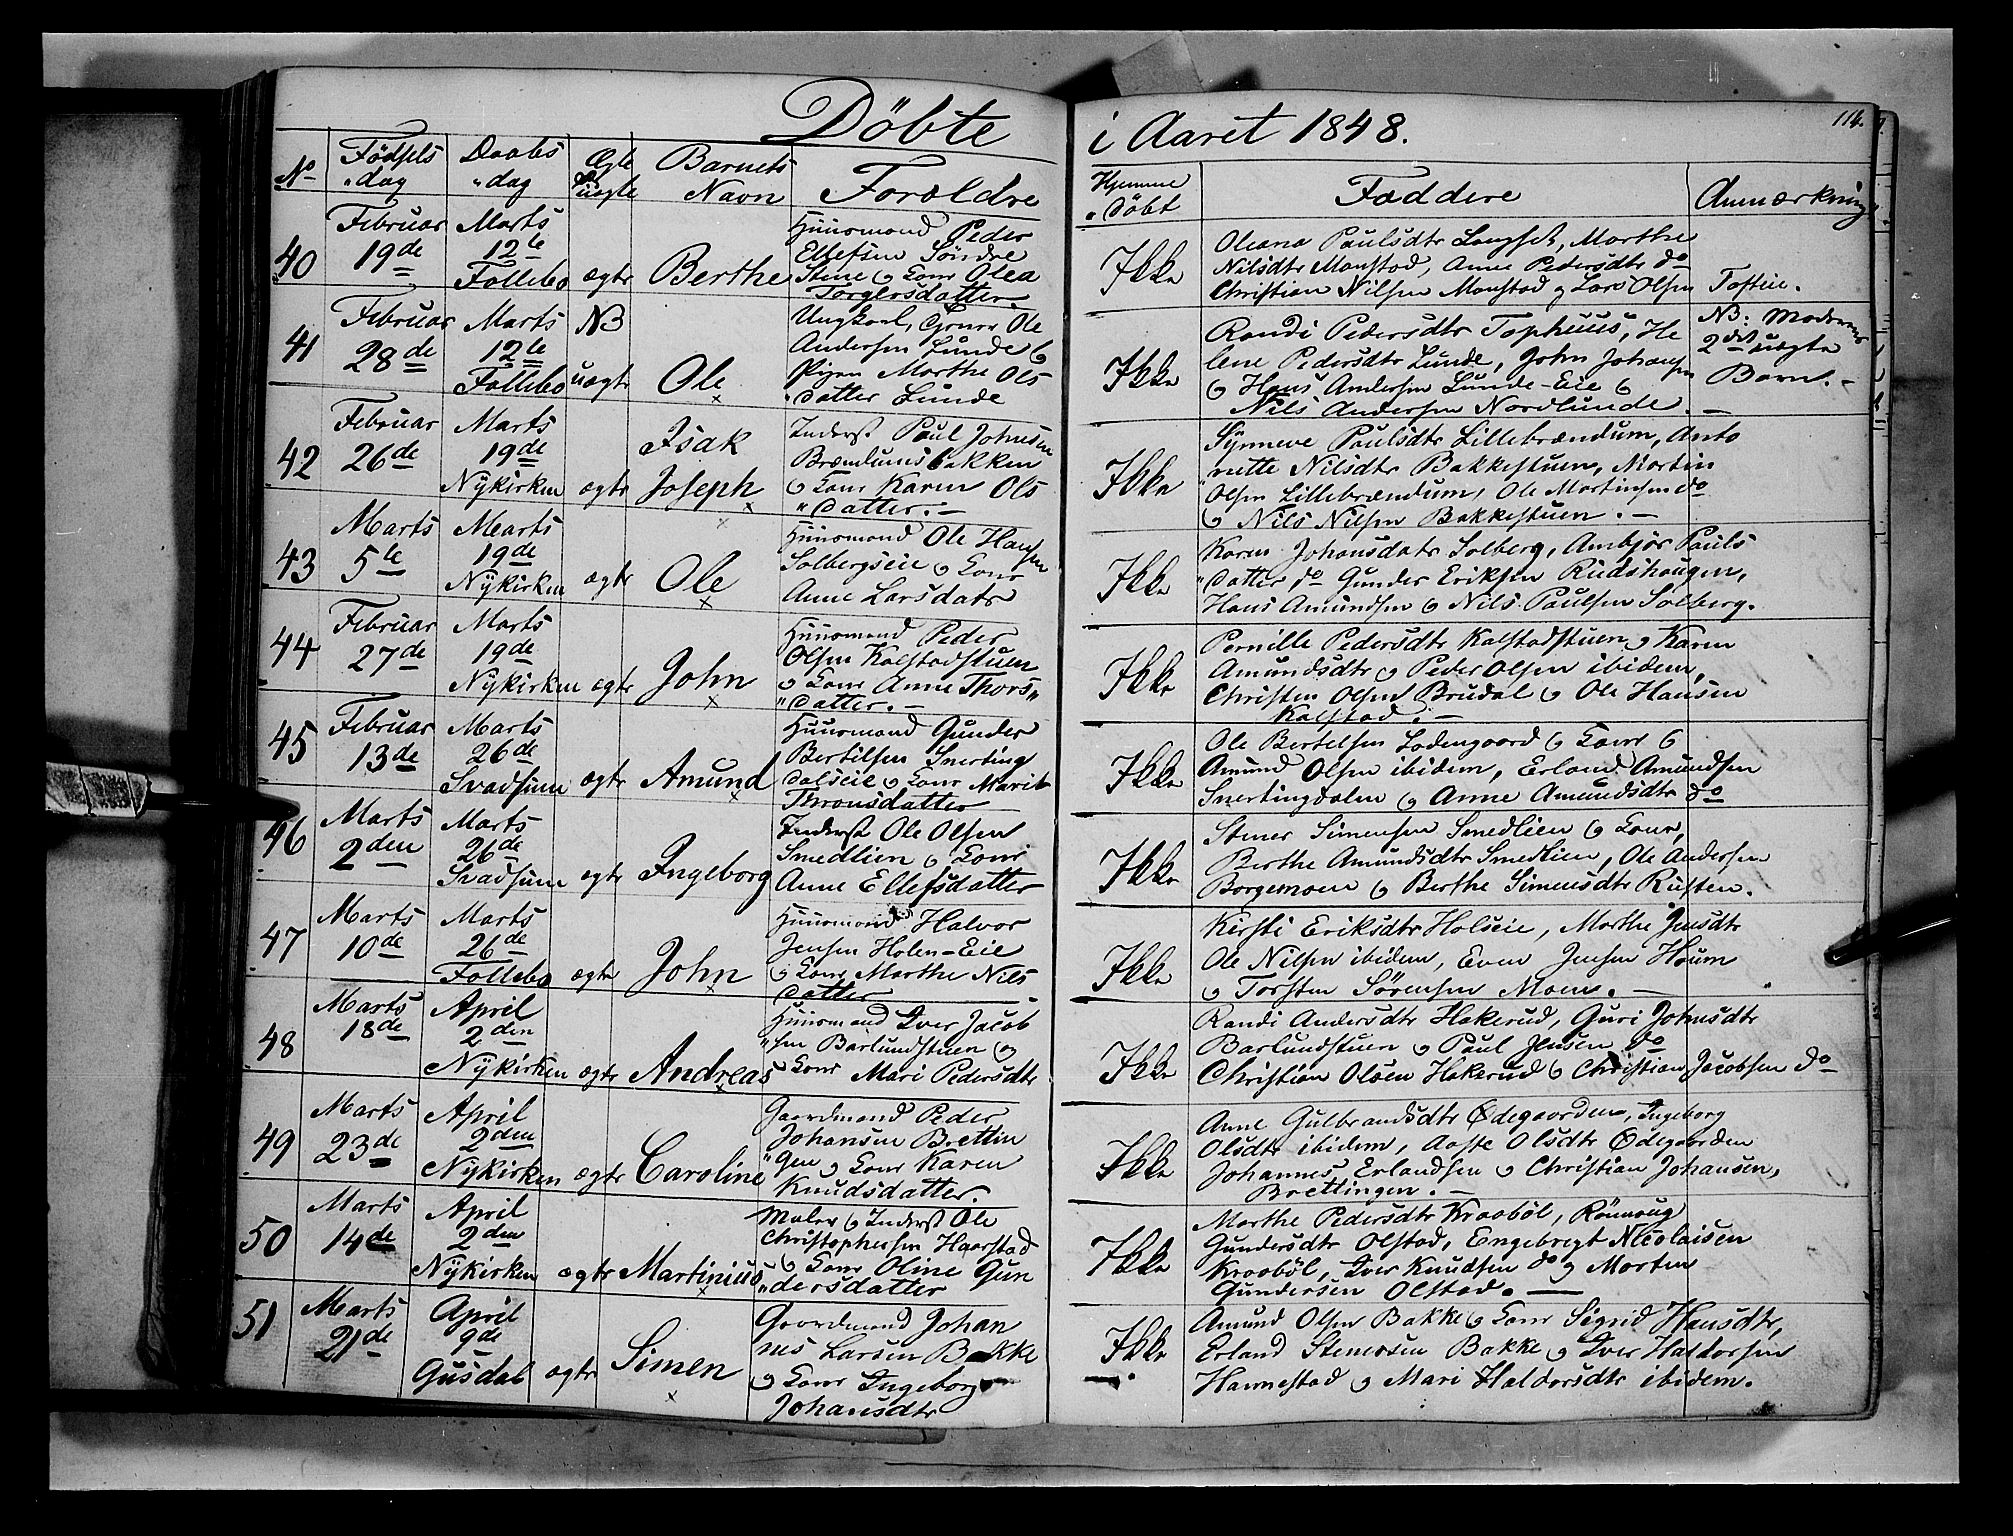 Döbte
i Aaret 1848.
114.
No
Födsels
"dag
Daabs
"dag
Ægte
el
uægte
Barnets
Navn
Forældre
Hjemme
"döbt
Faddere
Anmærkning
40
Februar
19de
Marts
12te
Follebo
ægte
Berthe
Huusmand Peder
Ellefsen Söndre
Stene og Kone Olea
Torgersdatter.
Ikke
Oleana Paulsdtr Langset, Marthe
Nilsdtr Monstad, Anne Pedersdtr do
Christian Nilsen Monstad og Lars Olsen Toftiie.
41
Februar
28de
Marts
12te
Follebo
NB
uægte
Ole
Ungkarl, Ole
Andersen Lunde og
Pigen Marthe Ols
"datter Lunde
Ikke
Randi Pedersdtr Tophuus, He
lene Pedersdtr Lunde, John Johansen
og Hans Andersen Lunde-Eie og
Nils Andersen Nordlunde. —
NB: Moderens
2det uægte
Barn. —
42
Februar
26de
Marts
19de
Nykirken
ægte
Isak
Joseph
Inderst Paul Johnsen
Brændumsbakken
og Kone Karen Ols
"datter. —
Ikke
Synneve Paulsdtr Lillebrændum, Anto
nette Nilsdtr Bakkestuen, Martin
Olsen Lillebrændum, Ole Martinsen do
og Nils Nilsen Bakkestuen. —
43
Marts
5te
Marts
19de
Nykirken
ægte
Ole
Huusmand Ole Hansen
Solbergseie og Kone
Anne Larsdatr
Ikke
Karen Johansdatr Solberg, Ambjör Pauls
"datter do Gunder Eriksen Rudshaugen,
Hans Amundsen og Nils Paulsen Solberg.
44
Februar
27de
Marts
19de
Nykirken
ægte
John
Huusmand Peder
Olsen Kalstadstuen
og Kone Anne Thors"
"datter. —
Ikke
Pernille Pedersdtr Kalstadstuen og Karen
Amundsdtr og Peder Olsen ibidem,
Christen Olsen Brudal og Ole Hansen
Kalstad. —
45
Februar
13de
Marts
26de
Svadsum
ægte
Amund
Huusmand Gunder
Bertilsen Snerting
dalseie og Kone Marit
Thronsdatter
Ikke
Ole Bertelsen Lodengaard og Kone og
Amund Olsen ibidem, Erland Amundsen
Snertingdalen og Anne Amundsdtr do
46
Marts
2den
Marts
26de
Svadsum
ægte
Ingeborg
Inderst Ole Olsen
Smedlien og Kone
Anne Ellefsdatter
Ikke
Stener Simensen Smedlien og Kone,
Berthe Amundsdtr Smedlien, Ole Andersen
Borgemoen og Berthe Simensdtr Rusten.
47
Marts
10de
Marts
26de
Follebo
ægte
John
Huusmand Halvor
Jensen Holen-Eie
og Kone Marthe Nils
datter
Ikke
Kirsti Eriksdtr Holseie, Marthe Jensdtr
Ole Nilsen ibidem, Even Jensen Houm
og Torsten Sörensen Moene. —
48
Marts
18de
April
2den
Nykirken
ægte
Andreas
Huusmand Iver Jacob
"sen Barlundstuen og
Kone Mari Pedersdtr
Ikke
Randi Andersdtr Hakerud, Guri Johnsdtr
Barlundstuen og Paul Jensen do
Christian Olsen Hakerud og Christian Jacobsen do
49
Marts
23de
April
2den
Nykirken
ægte
Caroline
Gaardmand Peder
Johansen Brettin
"gen og Kone Karen
Knudsdatter.
Ikke
Anne Gulbrandsdtr Ödegaarden, Ingeborg
Olsdtr ibidem, Aaste Olsdtr Ödegaarden
Johannes Erlandsen og Christian Johansen,
Brettingen. —
50
Marts
14de
April
2den
Nykirken
ægte
Martinius
Maler og Inderst Ole
Christophersen Haarstad
og Kone Oline Gun
"dersdatter
Ikke
Marthe Pedersdtr Kraaböl, Rönnoug
Gundersdtr Olstad, Engebregt Nicolaisen
Kraaböl, Iver Knudsen do og Morten
Gundersen Olstad. —
51
Marts
21de
April
9de
Gusdal
ægte
Simen
Gaardmand Johan
nes Larsen Bakke
og Kone Ingeborg
Johansdtr
Ikke
Amund Olsen Bakke og Kone Sigrid Hansdtr,
Erland Stenersen Bakke og Iver Haldorsen
Harmestad og Mari Haldorsdtr ibidem.